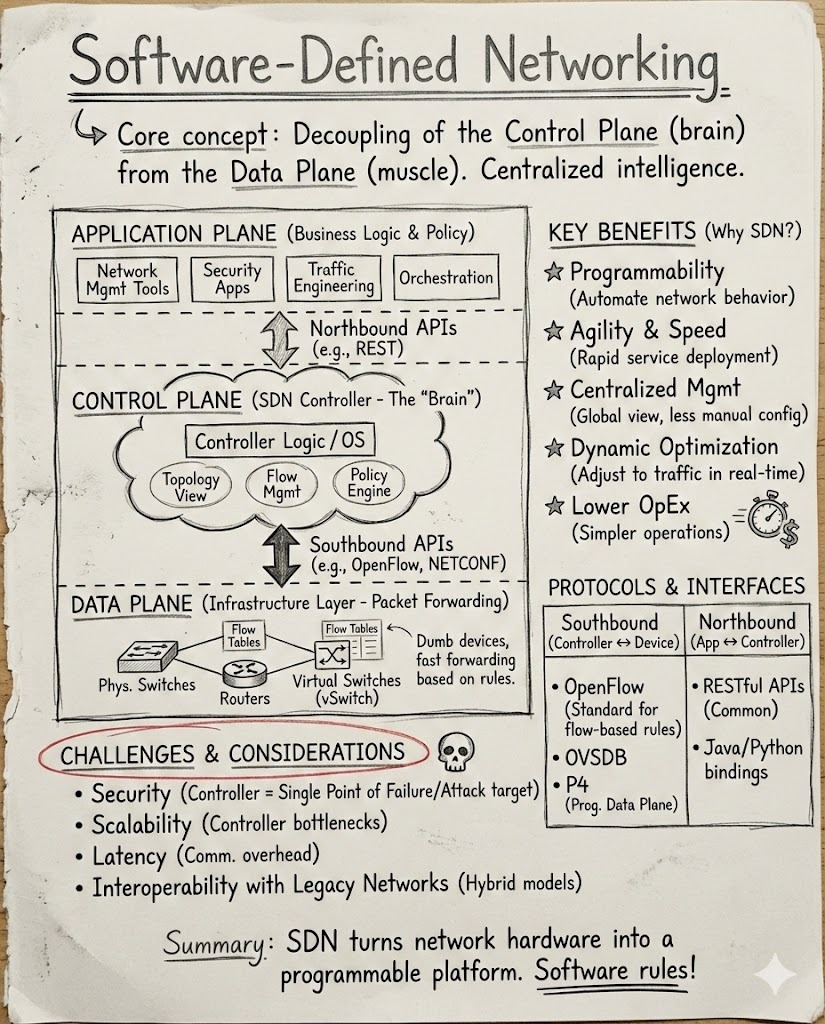 Software-Defined Networking
Core concept: Decoupling of the Control Plane (brain)
from the Data Plane (muscle). Centralized intelligence.
APPLICATION PLANE (Business Logic & Policy)
Network
Mgmt Tools
Security
Apps
Traffic
Engineering
Orchestration
Northbound APIs
(e.g., REST)
CONTROL PLANE (SDN Controller - The "Brain")
Controller Logic / OS
Topology
View
Flow
Mgmt
Policy
Engine
Southbound APIs
(e.g., OpenFlow, NETCONF)
DATA PLANE (Infrastructure Layer - Packet Forwarding)
Flow
Tables
Flow Tables
Phys. Switches
Routers
Virtual Switches
(vSwitch)
Dumb devices,
fast forwarding
based on rules.
KEY BENEFITS (Why SDN?)
☆ Programmability
(Automate network behavior)
☆ Agility & Speed
(Rapid service deployment)
☆ Centralized Mgmt
(Global view, less manual config)
☆ Dynamic Optimization
(Adjust to traffic in real-time)
☆ Lower OpEx
(Simpler operations)
$
PROTOCOLS & INTERFACES
Southbound
(Controller ↔ Device)
• OpenFlow
(Standard for
flow-based rules)
• OVSDB
• P4
(Prog. Data Plane)
Northbound
(App ↔ Controller)
• RESTful APIs
(Common)
• Java/Python
bindings
CHALLENGES & CONSIDERATIONS
• Security (Controller = Single Point of Failure/Attack target)
• Scalability (Controller bottlenecks)
• Latency (Comm. overhead)
• Interoperability with Legacy Networks (Hybrid models)
Summary: SDN turns network hardware into a
programmable platform. Software rules!